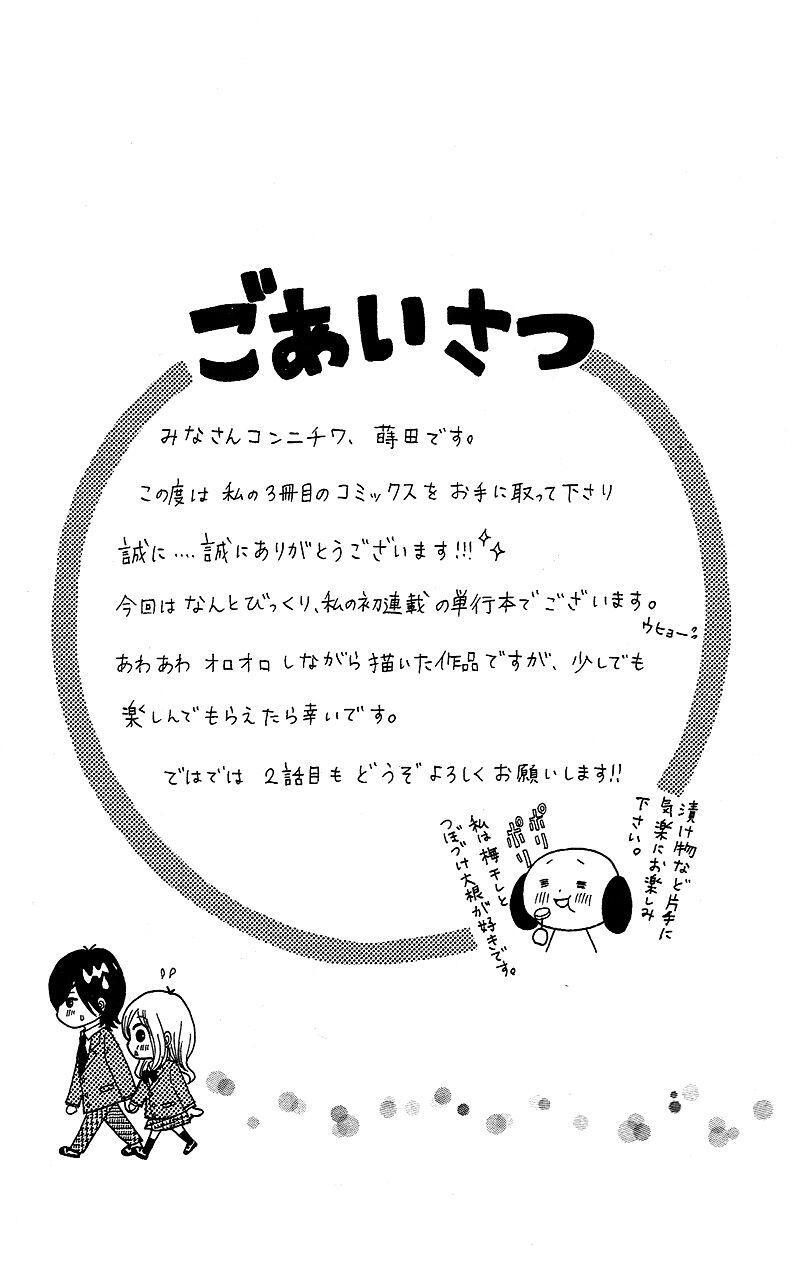 ごあいさつ
みなさんコンニチワ、蒔田です。
この度は私の3冊目のコミックスをお手に取って下さり
誠に‥‥誠にありがとうございます!!!
今回はなんとびっくり、私の初連載の単行本でございます。
ウヒョー
あわあわオロオロしながら描いた作品ですが、少しでも
楽しんでもらえたら幸いです。
ではでは2話目もどうぞよろしくお願いします!!
漬け物など片手に
気楽にお楽しみ
下さい。
ポリ
ポリ
私は梅干しと
つぼづけ大根が好きです。